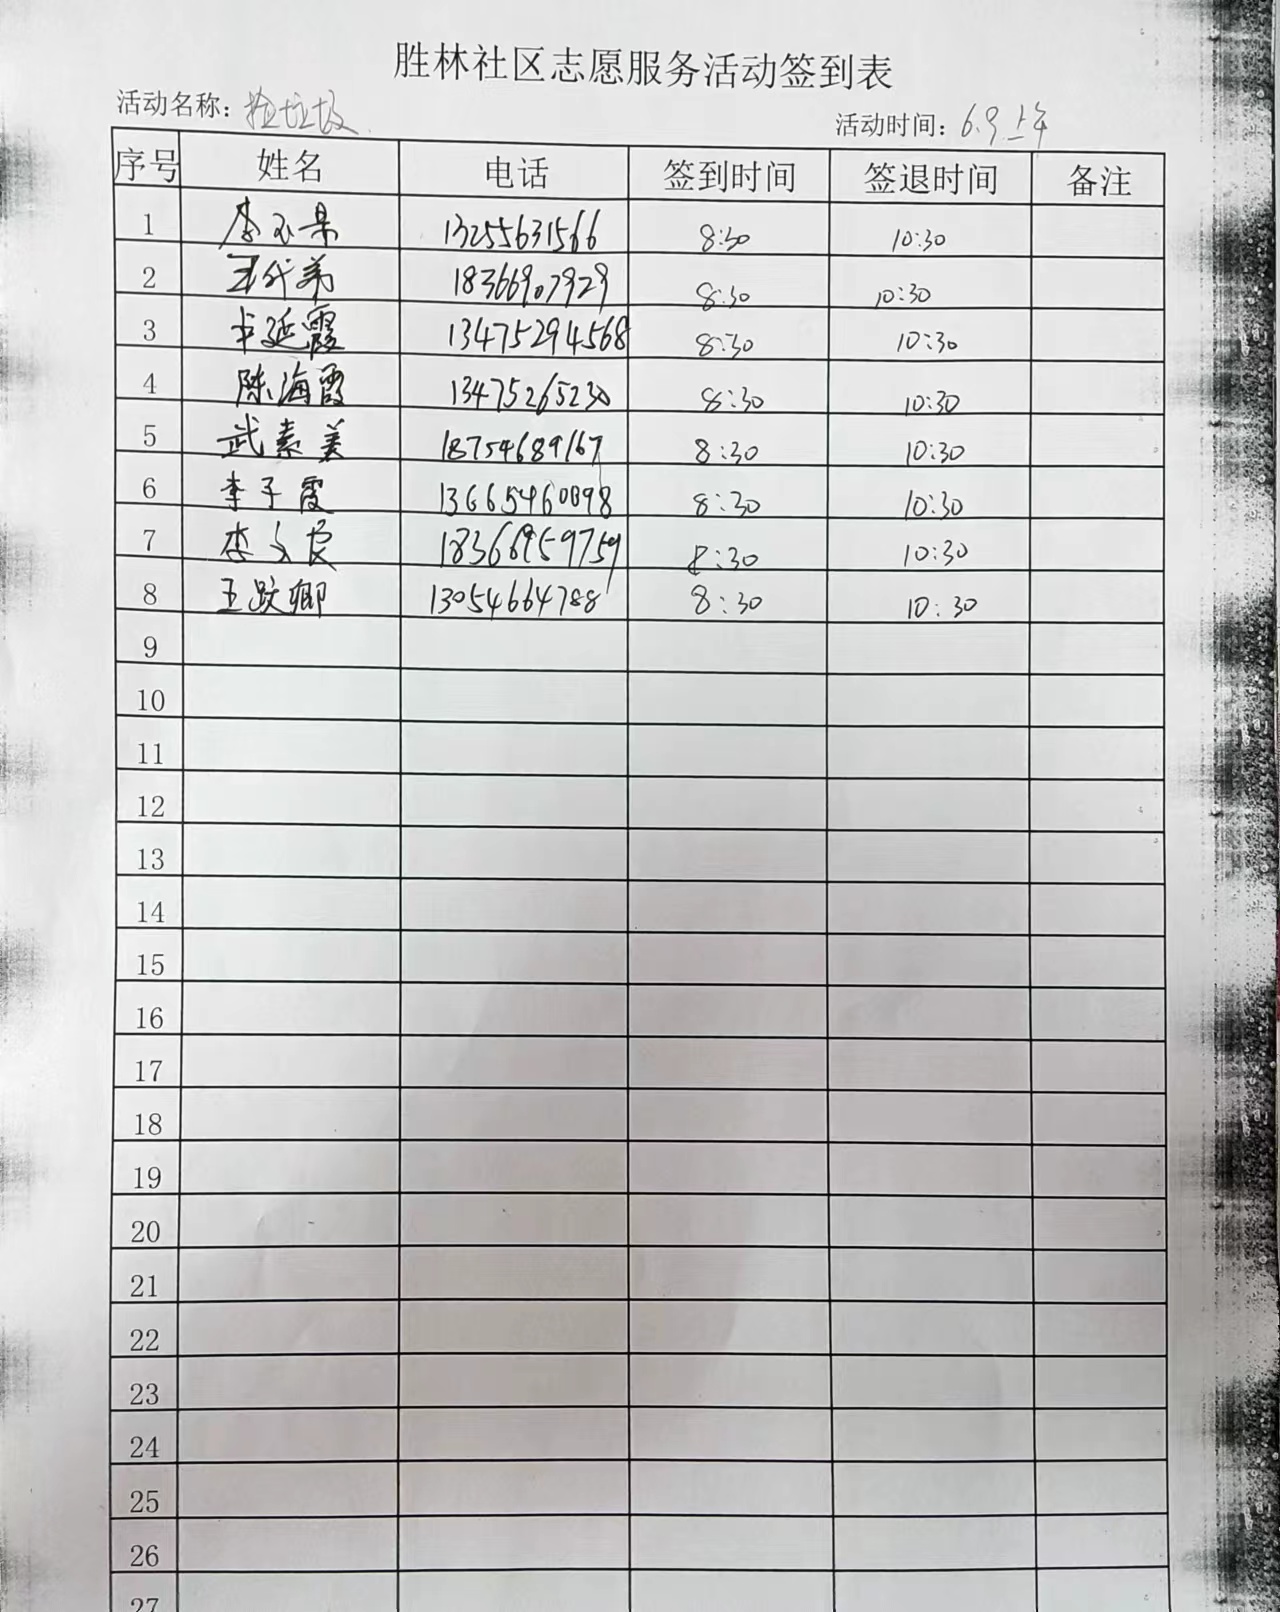 胜林社区志愿服务活动签到表
活动名称：捡垃圾 活动时间：6.9上午
序号 姓名 电话 签到时间 签退时间 备注
1 李玉杲 13255631566 8:30 10:30
2 王代弟 18366907929 8:30 10:30
3 卡延霞 13475294568 8:30 10:30
4 陈海霞 13475265230 8:30 10:30
5 武素美 18754689167 8:30 10:30
6 李子霞 13665460098 8:30 10:30
7 李文良 18366959759 8:30 10:30
8 王跤卿 13054664788 8:30 10:30
9
10
11
12
13
14
15
16
17
18
19
20
21
22
23
24
25
26
27